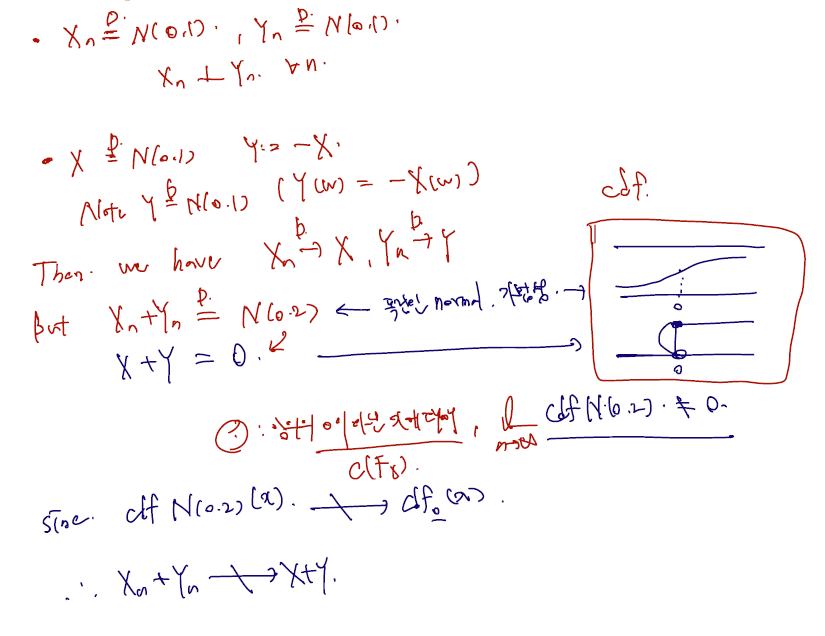 • Xₙ =ᴰ N(0,1). , Yₙ =ᴰ N(0,1).
Xₙ ⊥ Yₙ. ∀n.
• X =ᴰ N(0,1) Y := -X.
Note Y =ᴰ N(0,1) (Y(ω) = -X(ω))
cdf.
Then. we have Xₙ →ᴰ X, Yₙ →ᴰ Y
But Xₙ+Yₙ =ᴰ N(0,2) ← 독립인 normal. 가법성. →
0
X+Y = 0. ↙ →
0
: 이러한 x에 대하여, lim n→∞ cdf N(0,2). ≠ 0.
C(Fₓ).
Since. cdf N(0,2)(x). ↛ cdf₀(x).
∴ Xₙ+Yₙ ↛ X+Y.